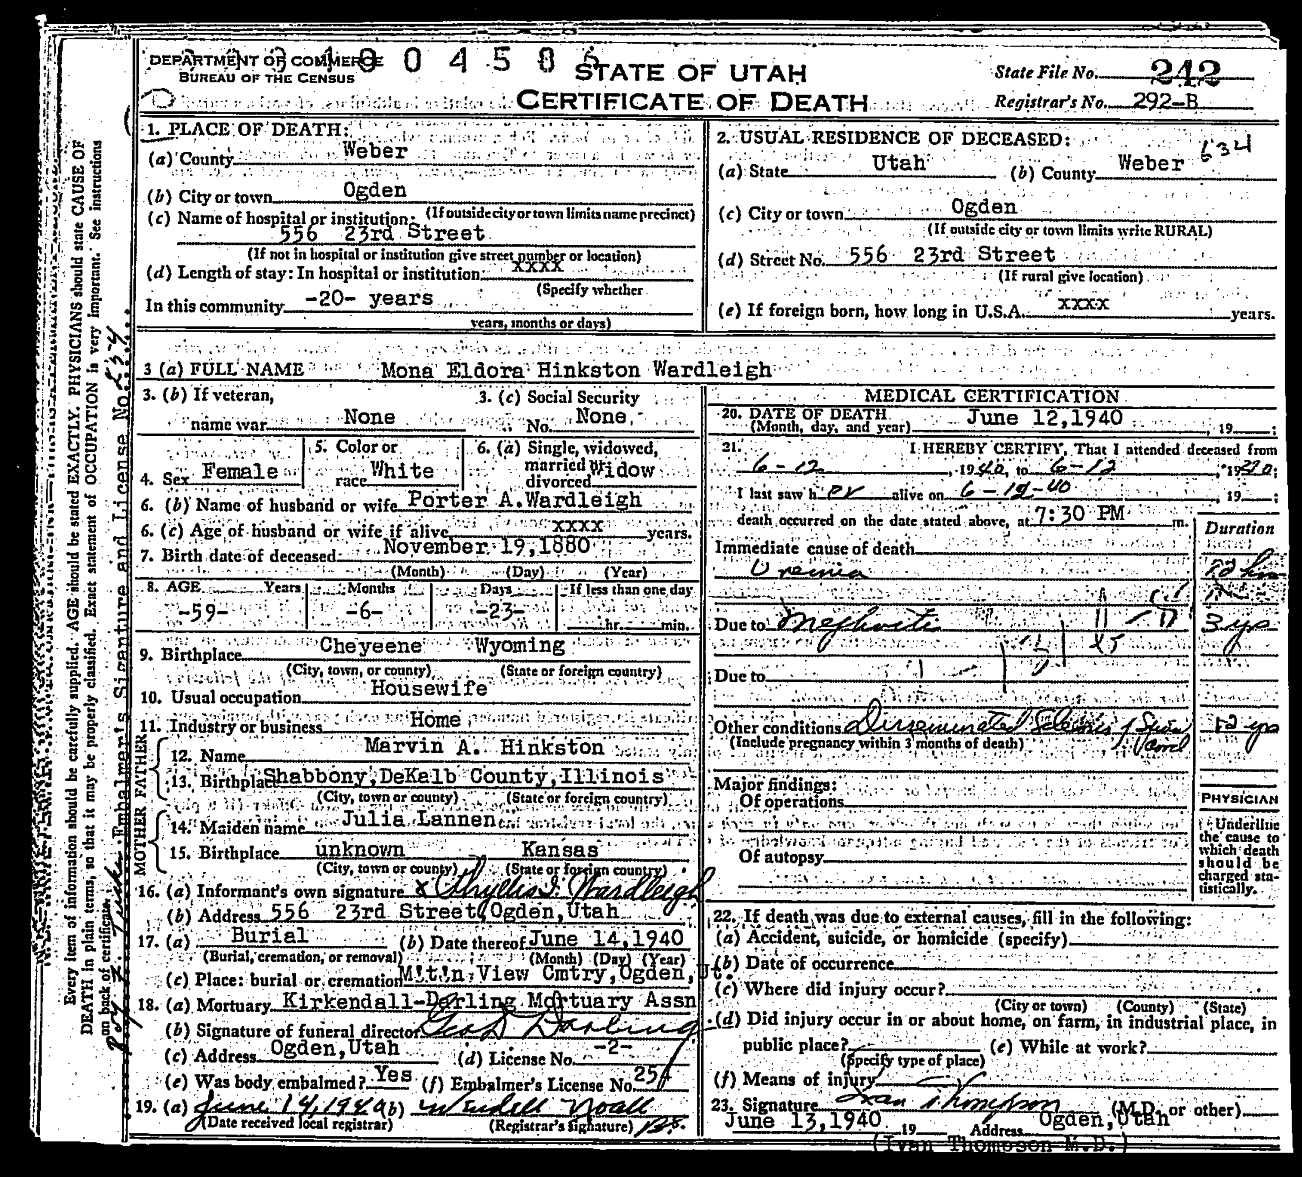 DEPARTMENT OF COMMERCE
BUREAU OF THE CENSUS
STATE OF UTAH
CERTIFICATE OF DEATH
State File No. 242
Registrar's No. 292-B
1. PLACE OF DEATH:
(a) County Weber
(b) City or town Ogden
(If outside city or town limits name precinct)
(c) Name of hospital or institution:
556 23rd Street
(If not in hospital or institution give street number or location)
(d) Length of stay: In hospital or institution xxxx
(Specify whether
In this community -20- years
years, months or days)
2. USUAL RESIDENCE OF DECEASED:
634
(a) State Utah (b) County Weber
(c) City or town Ogden
(If outside city or town limits write RURAL)
(d) Street No. 556 23rd Street
(If rural give location)
(e) If foreign born, how long in U.S.A. xxxx years.
3 (a) FULL NAME Mona Eldora Hinkston Wardleigh
3. (b) If veteran,
name war None
3. (c) Social Security
No. None
4. Sex Female
5. Color or
race White
6. (a) Single, widowed,
married or
divorced Widow
6. (b) Name of husband or wife Porter A.Wardleigh
6. (c) Age of husband or wife if alive xxxx years.
7. Birth date of deceased November 19,1880
(Month) (Day) (Year)
8. AGE Years Months Days If less than one day
-59- -6- -23- hr. min.
9. Birthplace Cheyeene Wyoming
(City, town, or county) (State or foreign country)
10. Usual occupation Housewife
11. Industry or business Home
FATHER
12. Name Marvin A. Hinkston
13. Birthplace Shabbony,DeKalb County,Illinois
(City, town or county) (State or foreign country)
MOTHER
14. Maiden name Julia Lannen
15. Birthplace unknown Kansas
(City, town or county) (State or foreign country)
16. (a) Informant's own signature x Phyllis I. Wardleigh
(b) Address 556 23rd Street,Ogden,Utah
17. (a) Burial (b) Date thereof June 14,1940
(Burial, cremation, or removal) (Month) (Day) (Year)
(c) Place: burial or cremation M't'n View Cmtry,Ogden,Ut.
18. (a) Mortuary Kirkendall-Darling Mortuary Assn
(b) Signature of funeral director Geo S Darling
(c) Address Ogden,Utah (d) License No. -2-
(e) Was body embalmed? Yes (f) Embalmer's License No. 254
19. (a) June 14, 1940 (b) Wendell Noall
(Date received local registrar) (Registrar's signature)
MEDICAL CERTIFICATION
20. DATE OF DEATH June 12,1940
(Month, day, and year) , 19 ;
21. I HEREBY CERTIFY, That I attended deceased from
6-12 , 1940, to 6-12 , 1940;
I last saw her alive on 6-12-40 , 19 ;
death occurred on the date stated above, at 7:30 PM m.
Duration
Immediate cause of death
Uremia
Due to Nephritis 3 yrs
Due to
Other conditions Disseminated Sclerosis of Spinal Cord 12 yrs
(Include pregnancy within 3 months of death)
Major findings:
Of operations
Of autopsy
PHYSICIAN
Underline
the cause to
which death
should be
charged sta-
tistically.
22. If death was due to external causes, fill in the following:
(a) Accident, suicide, or homicide (specify)
(b) Date of occurrence
(c) Where did injury occur?
(City or town) (County) (State)
(d) Did injury occur in or about home, on farm, in industrial place, in
public place? (e) While at work?
(Specify type of place)
(f) Means of injury
23. Signature Ivan Thompson (M.D. or other)
June 13,1940 19 Address Ogden,Utah
(Ivan Thompson M.D.)
Every item of information should be carefully supplied. AGE should be stated EXACTLY. PHYSICIANS should state CAUSE OF
DEATH in plain terms, so that it may be properly classified. Exact statement of OCCUPATION is very important. See instructions
on back of certificate.
Embalmer's Signature and License No.